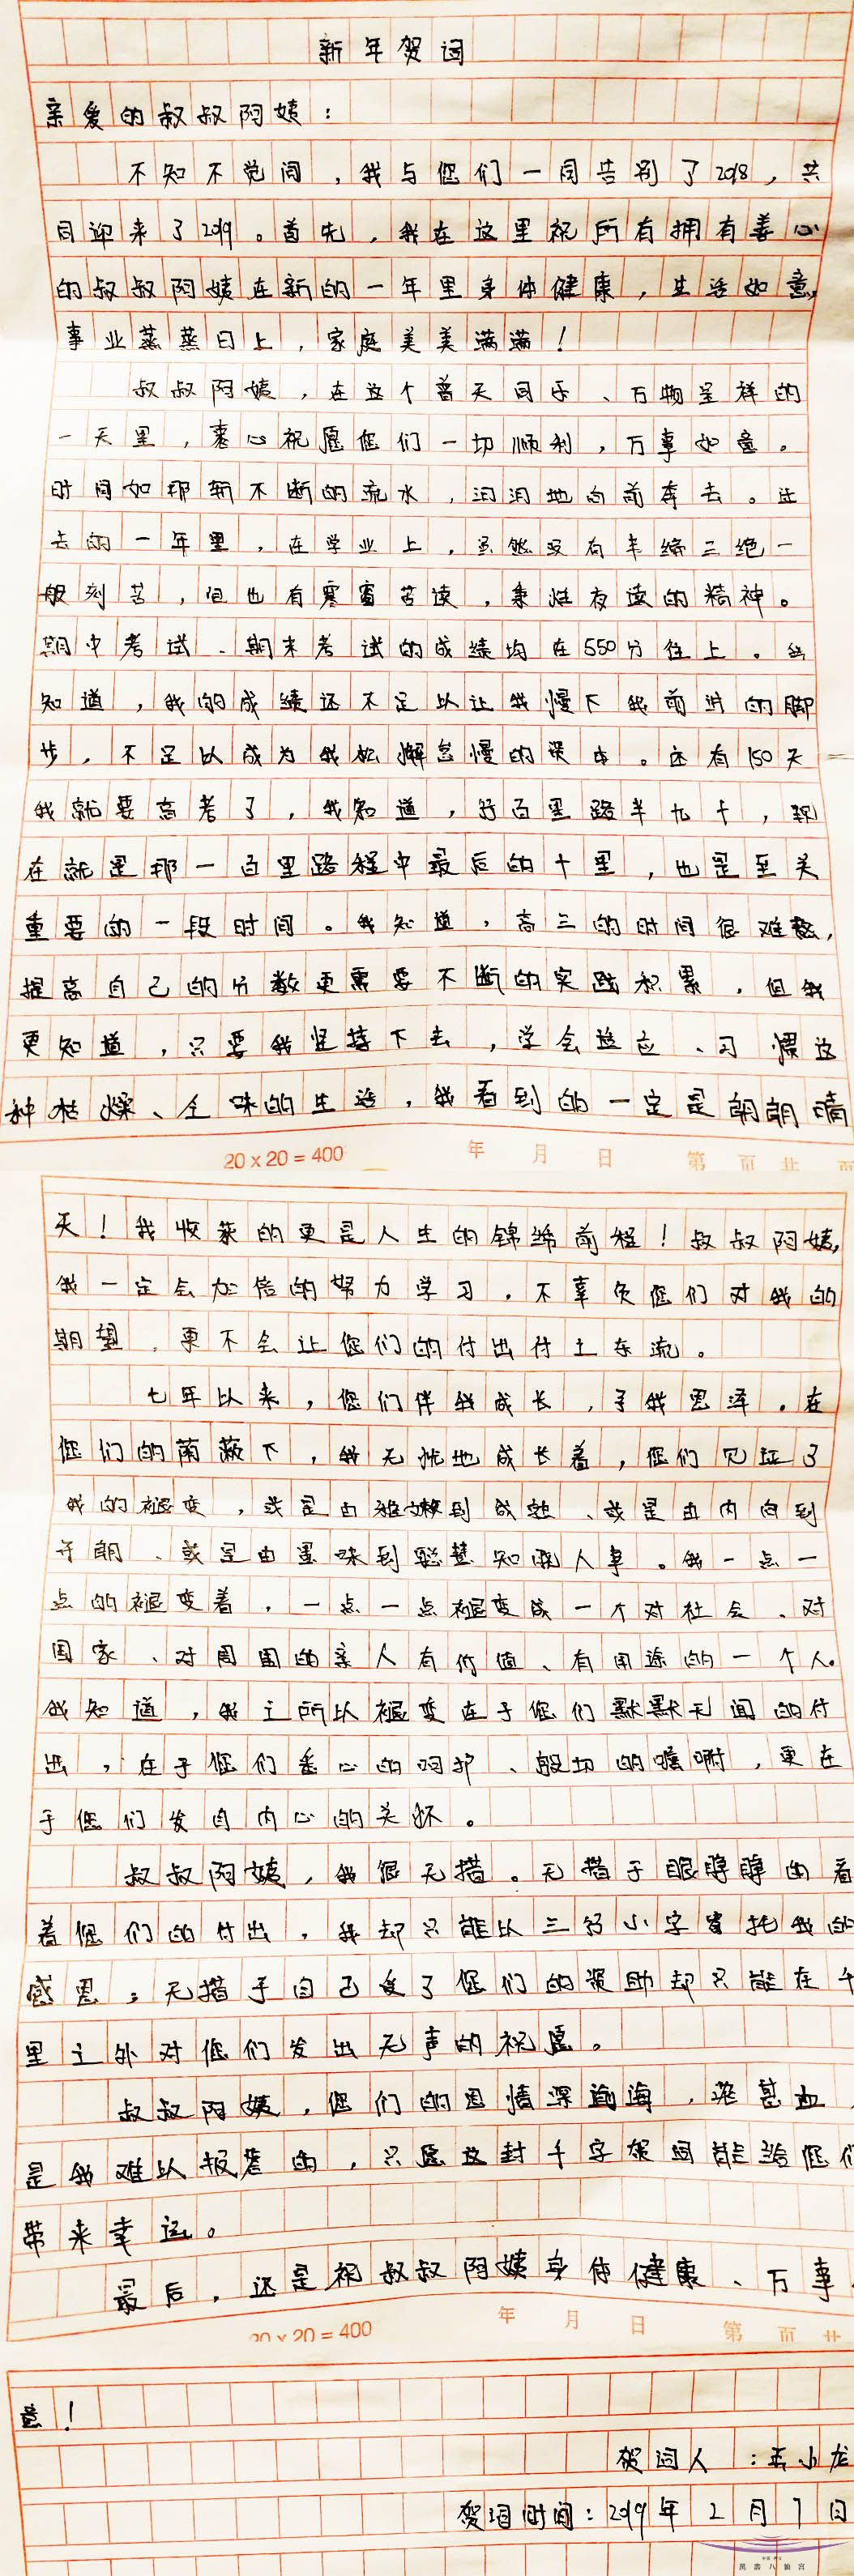 新年贺词
亲爱的叔叔阿姨：
不知不觉间，我与您们一同告别了2018，共
同迎来了2019。首先，我在这里祝所有拥有善心
的叔叔阿姨在新的一年里身体健康，生活如意，
事业蒸蒸日上，家庭美美满满！
叔叔阿姨，在这个普天同乐、万物呈祥的
一天里，衷心祝愿您们一切顺利，万事如意。
时间如那斩不断的流水，汩汩地向前奔去。过
去的一年里，在学业上，虽然没有韦编三绝一
般刻苦，但也有寒窗苦读，秉烛夜读的精神。
期中考试、期末考试的成绩均在550分往上。我
知道，我的成绩还不足以让我慢下我前进的脚
步，不足以成为我松懈怠慢的资本。还有150天
我就要高考了，我知道，行百里路半九十，现
在就是那一百里路程中最后的十里，也是至关
重要的一段时间。我知道，高三的时间很难熬，
提高自己的分数更需要不断的实践积累，但我
更知道，只要我坚持下去，学会适应、习惯这
种枯燥、乏味的生活，我看到的一定是朗朗晴
20×20=400 年 月 日 第 页 共 页
天！我收获的更是人生的锦绣前程！叔叔阿姨，
我一定会加倍的努力学习，不辜负您们对我的
期望，更不会让您们的付出付之东流。
七年以来，您们伴我成长，予我恩泽。在
您们的荫蔽下，我无忧地成长着，您们见证了
我的褪变，或是由稚嫩到成熟、或是由内向到
开朗、或是由愚昧到聪慧知晓人事。我一点一
点的褪变着，一点一点褪变成一个对社会、对
国家、对周围的亲人有价值、有用途的一个人。
我知道，我之所以褪变在于您们默默无闻的付
出，在于您们悉心的呵护、殷切的嘱咐，更在
于您们发自内心的关怀。
叔叔阿姨，我很无措。无措于眼睁睁的看
着您们的付出，我却只能以三百小字寄托我的
感恩；无措于自己受了您们的资助却只能在千
里之外对您们发出无声的祝愿。
叔叔阿姨，您们的恩情深逾海，浓甚血，
是我难以报答的，只愿这封千字贺词能给您们
带来幸运。
最后，还是祝叔叔阿姨身体健康、万事
20×20=400 年 月 日 第 页 共
意！
贺词人：王小龙
贺词时间：2019年2月7日
萬壽八仙宮